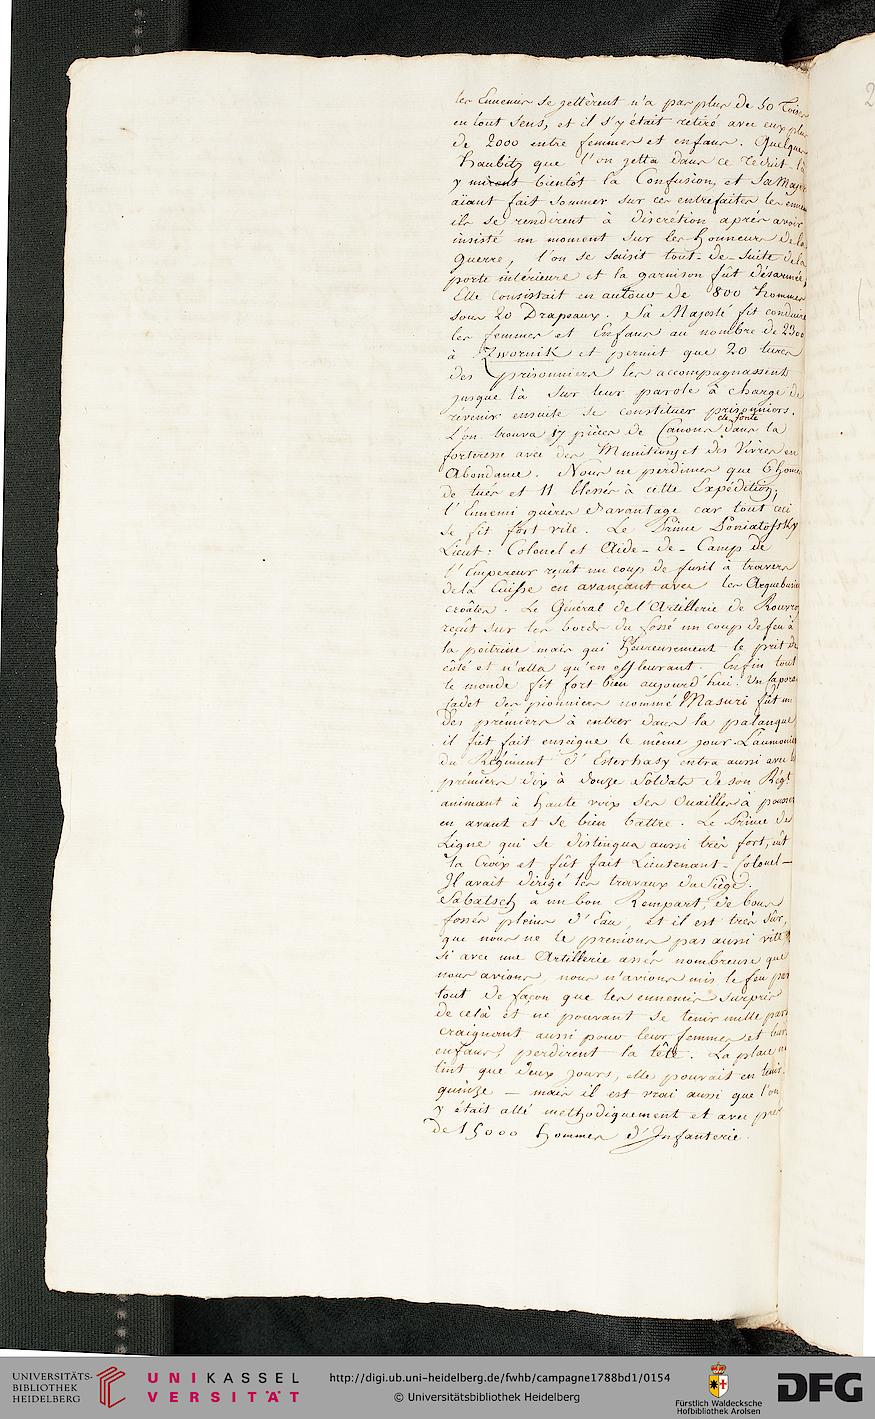 les Ennemis se jettèrent n'a pas plus de 50 Toises
en tout sens, et il s'y était retiré avec eux plus
de 2000 entre femmes et enfans. Quelques
Haubitz que l'on jetta dans ce réduit-là
y mirent bientôt la Confusion, et Sa Majesté
aïant fait sommer sur ces entrefaites les ennemis
ils se rendirent à discrétion aprés avoir
insisté un moment sur les honneurs de la
guerre, l'on se saisit tout-de-suite de la
porte intérieure et la garnison fût désarmée,
Elle consistait en autour de 800 hommes
sous 20 Drapeaux. Sa Majesté fit conduire
les femmes et Enfans au nombre de 2300
à Zwornik et permit que 20 turcs
des prisonniers les accompagnassent
jusque là sur leur parole à charge de
révenir ensuite se constituer prisonniers.
de fonte
L'on trouva 17 pièces de Canons dans la
forteresse avec des Munitions et des Vivres en
Abondance. Nous ne perdimes que 6 homes
de tués et 11 blessés à cette Expédition,
l'Ennemi guères davantage car tout ceci
se fit fort vite. Le Prince Poniatofsky
Lieut: Colonel et Aide-de-Camp de
l'Empereur reçût un coup de fusil à travers
de la Cuisse en avançant avec les Arquebusiers
croâtes. Le Général de l'Artillerie de Rouvroy
reçût sur les bords du fossé un coup de feu à
la poitrine mais qui heureusement le prit de
côté et n'alla qu'en effleurant. Enfin tout
le monde fit fort bien aujourd'hui. Un
Cadet des pionniers nommé Masuri fût un
des prémiers à entrer dans la palanque
il fût fait enseigne le même jour. L'aumonier
du Régiment d'Esterhasy entra aussi avec les
prémiers dix à douze Soldats de son Régt
animant à haute voix ses Ouailles à pousser
en avant et se bien battre. Le Prince de
Ligne qui se distingua aussi très fort, eût
la Croix et fût fait Lieutenant-Colonel-
Il avait dirigé les travaux du Siège.
Sabatsch a un bon Rempart, de bons
fossés pleins d'Eau, et il est très sûr,
que nous ne le prenions pas aussi vite
si avec une Artillerie assés nombreuse que
nous avions, nous n'avions mis le feu par
tout de façon que les ennemis surpris
de celà et ne pouvant se tenir nulle part
craignant aussi pour leur femmes et leur
enfans, perdirent la tête. La place ne
tint que deux jours, elle pouvait en tenir
quinze - mais il est vrai aussi que l'on
y était allé methodiquement et avec près
de 15000 hommes d'Infanterie.
UNIVERSITÄTS-
BIBLIOTHEK
HEIDELBERG
UNIKASSEL
VERSITÄT
http://digi.ub.uni-heidelberg.de/fwhb/campagne1788bd1/0154
© Universitätsbibliothek Heidelberg
Fürstlich Waldecksche
Hofbibliothek Arolsen
DFG